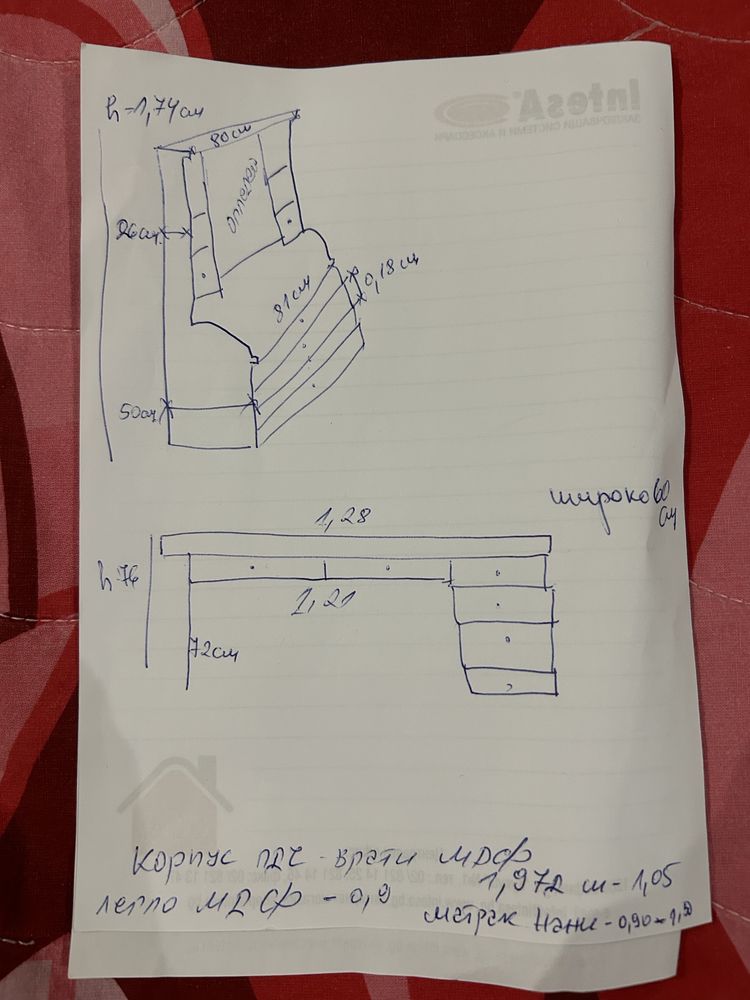 h-1,74см
80см
26см
огледало
81см
0,18см
50см
широко 60
см
1,28
h-76
1,21
72см
Корпус ПДЧ - врати МДФ
1,972 ш-1,05
легло МДФ - 0,9
матрак Нани - 0,90
IntesA®
ЗАКЛЮЧВАЩИ СИСТЕМИ И АКСЕСОАРИ